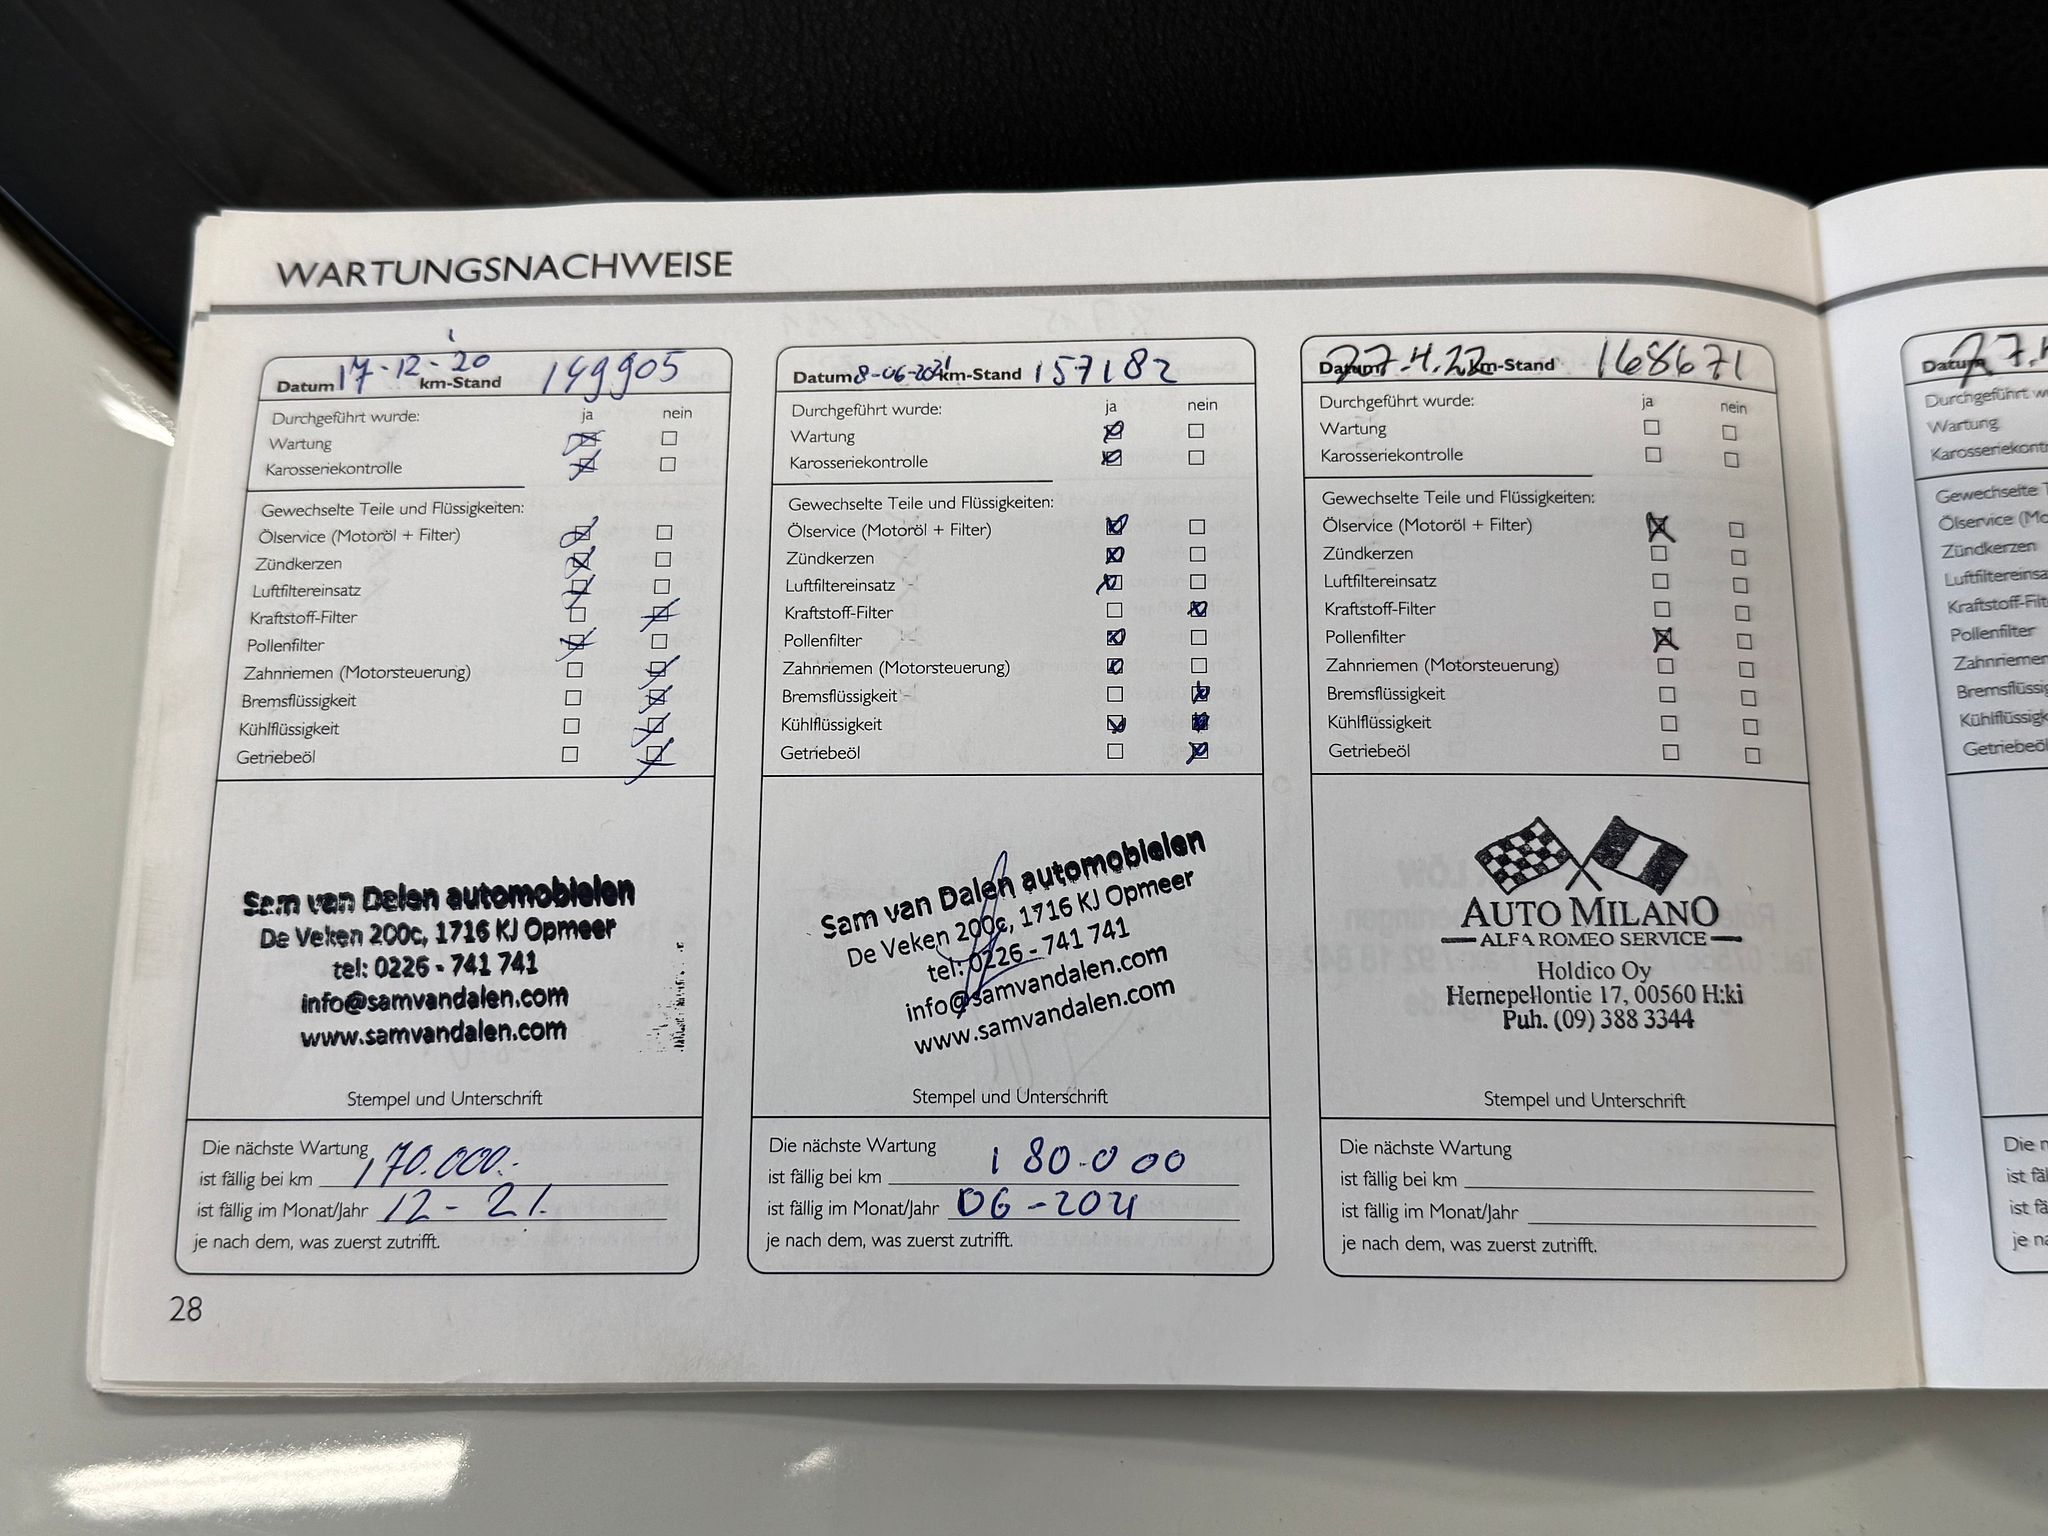 WARTUNGSNACHWEISE
Datum 17-12-'20 km-Stand 149905
Durchgeführt wurde: ja nein
Wartung
Karosseriekontrolle
Gewechselte Teile und Flüssigkeiten:
Ölservice (Motoröl + Filter)
Zündkerzen
Luftfiltereinsatz
Kraftstoff-Filter
Pollenfilter
Zahnriemen (Motorsteuerung)
Bremsflüssigkeit
Kühlflüssigkeit
Getriebeöl
Sam van Dalen automobielen
De Veken 200c, 1716 KJ Opmeer
tel: 0226 - 741 741
info@samvandalen.com
www.samvandalen.com
Stempel und Unterschrift
Die nächste Wartung
ist fällig bei km 170.000.-
ist fällig im Monat/Jahr 12-21.
je nach dem, was zuerst zutrifft.
28
Datum 8-06-2021 km-Stand 157182
Durchgeführt wurde: ja nein
Wartung
Karosseriekontrolle
Gewechselte Teile und Flüssigkeiten:
Ölservice (Motoröl + Filter)
Zündkerzen
Luftfiltereinsatz
Kraftstoff-Filter
Pollenfilter
Zahnriemen (Motorsteuerung)
Bremsflüssigkeit
Kühlflüssigkeit
Getriebeöl
Sam van Dalen automobielen
De Veken 200c, 1716 KJ Opmeer
tel: 0226 - 741 741
info@samvandalen.com
www.samvandalen.com
Stempel und Unterschrift
Die nächste Wartung
ist fällig bei km 180.000
ist fällig im Monat/Jahr 06-2021
je nach dem, was zuerst zutrifft.
Datum 27.4.22 km-Stand 168671
Durchgeführt wurde: ja nein
Wartung
Karosseriekontrolle
Gewechselte Teile und Flüssigkeiten:
Ölservice (Motoröl + Filter)
Zündkerzen
Luftfiltereinsatz
Kraftstoff-Filter
Pollenfilter
Zahnriemen (Motorsteuerung)
Bremsflüssigkeit
Kühlflüssigkeit
Getriebeöl
AUTO MILANO
ALFA ROMEO SERVICE
Holdico Oy
Hernepellontie 17, 00560 H:ki
Puh. (09) 388 3344
Stempel und Unterschrift
Die nächste Wartung
ist fällig bei km
ist fällig im Monat/Jahr
je nach dem, was zuerst zutrifft.
Datum
Durchgeführt
Wartung
Gewechselte
Zündkerzen
Pollenfilter
Zahnriemen
Getriebeöl
Die
ist
ist
je